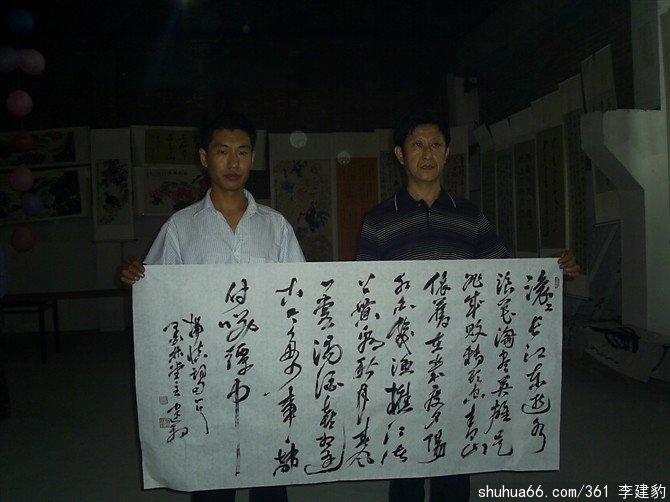 滚々长江东逝水
浪花淘尽英雄是
非成败转头空青山
依舊在几度夕陽
红白发渔樵江渚
上惯看秋月春风
一壶浊酒喜相逢
古今多少事都
付笑谭中
杨慎词
堂主建豹
shuhua66.com/361 李建豹